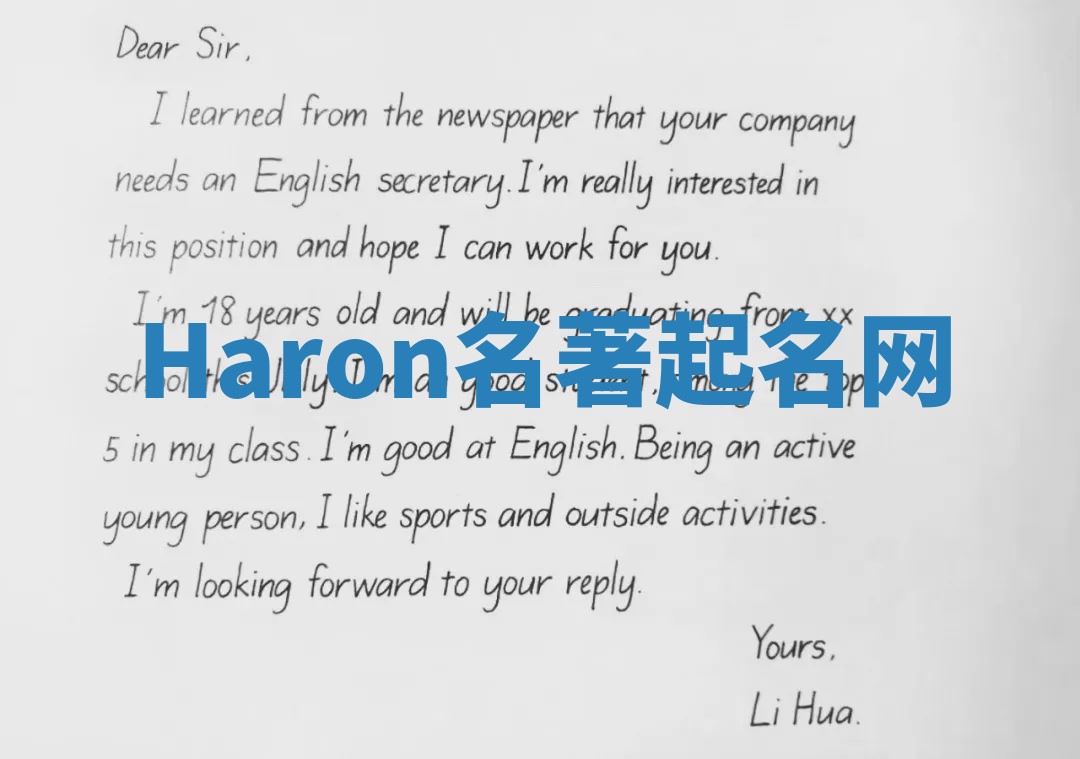 Dear Sir,
I learned from the newspaper that your company
needs an English secretary. I'm really interested in
this position and hope I can work for you.
I'm 18 years old and will be graduating from xx
Haron名著起名网
school this July. I'm a good student, among the top
5 in my class. I'm good at English. Being an active
young person, I like sports and outside activities.
I'm looking forward to your reply.
Yours,
Li Hua.